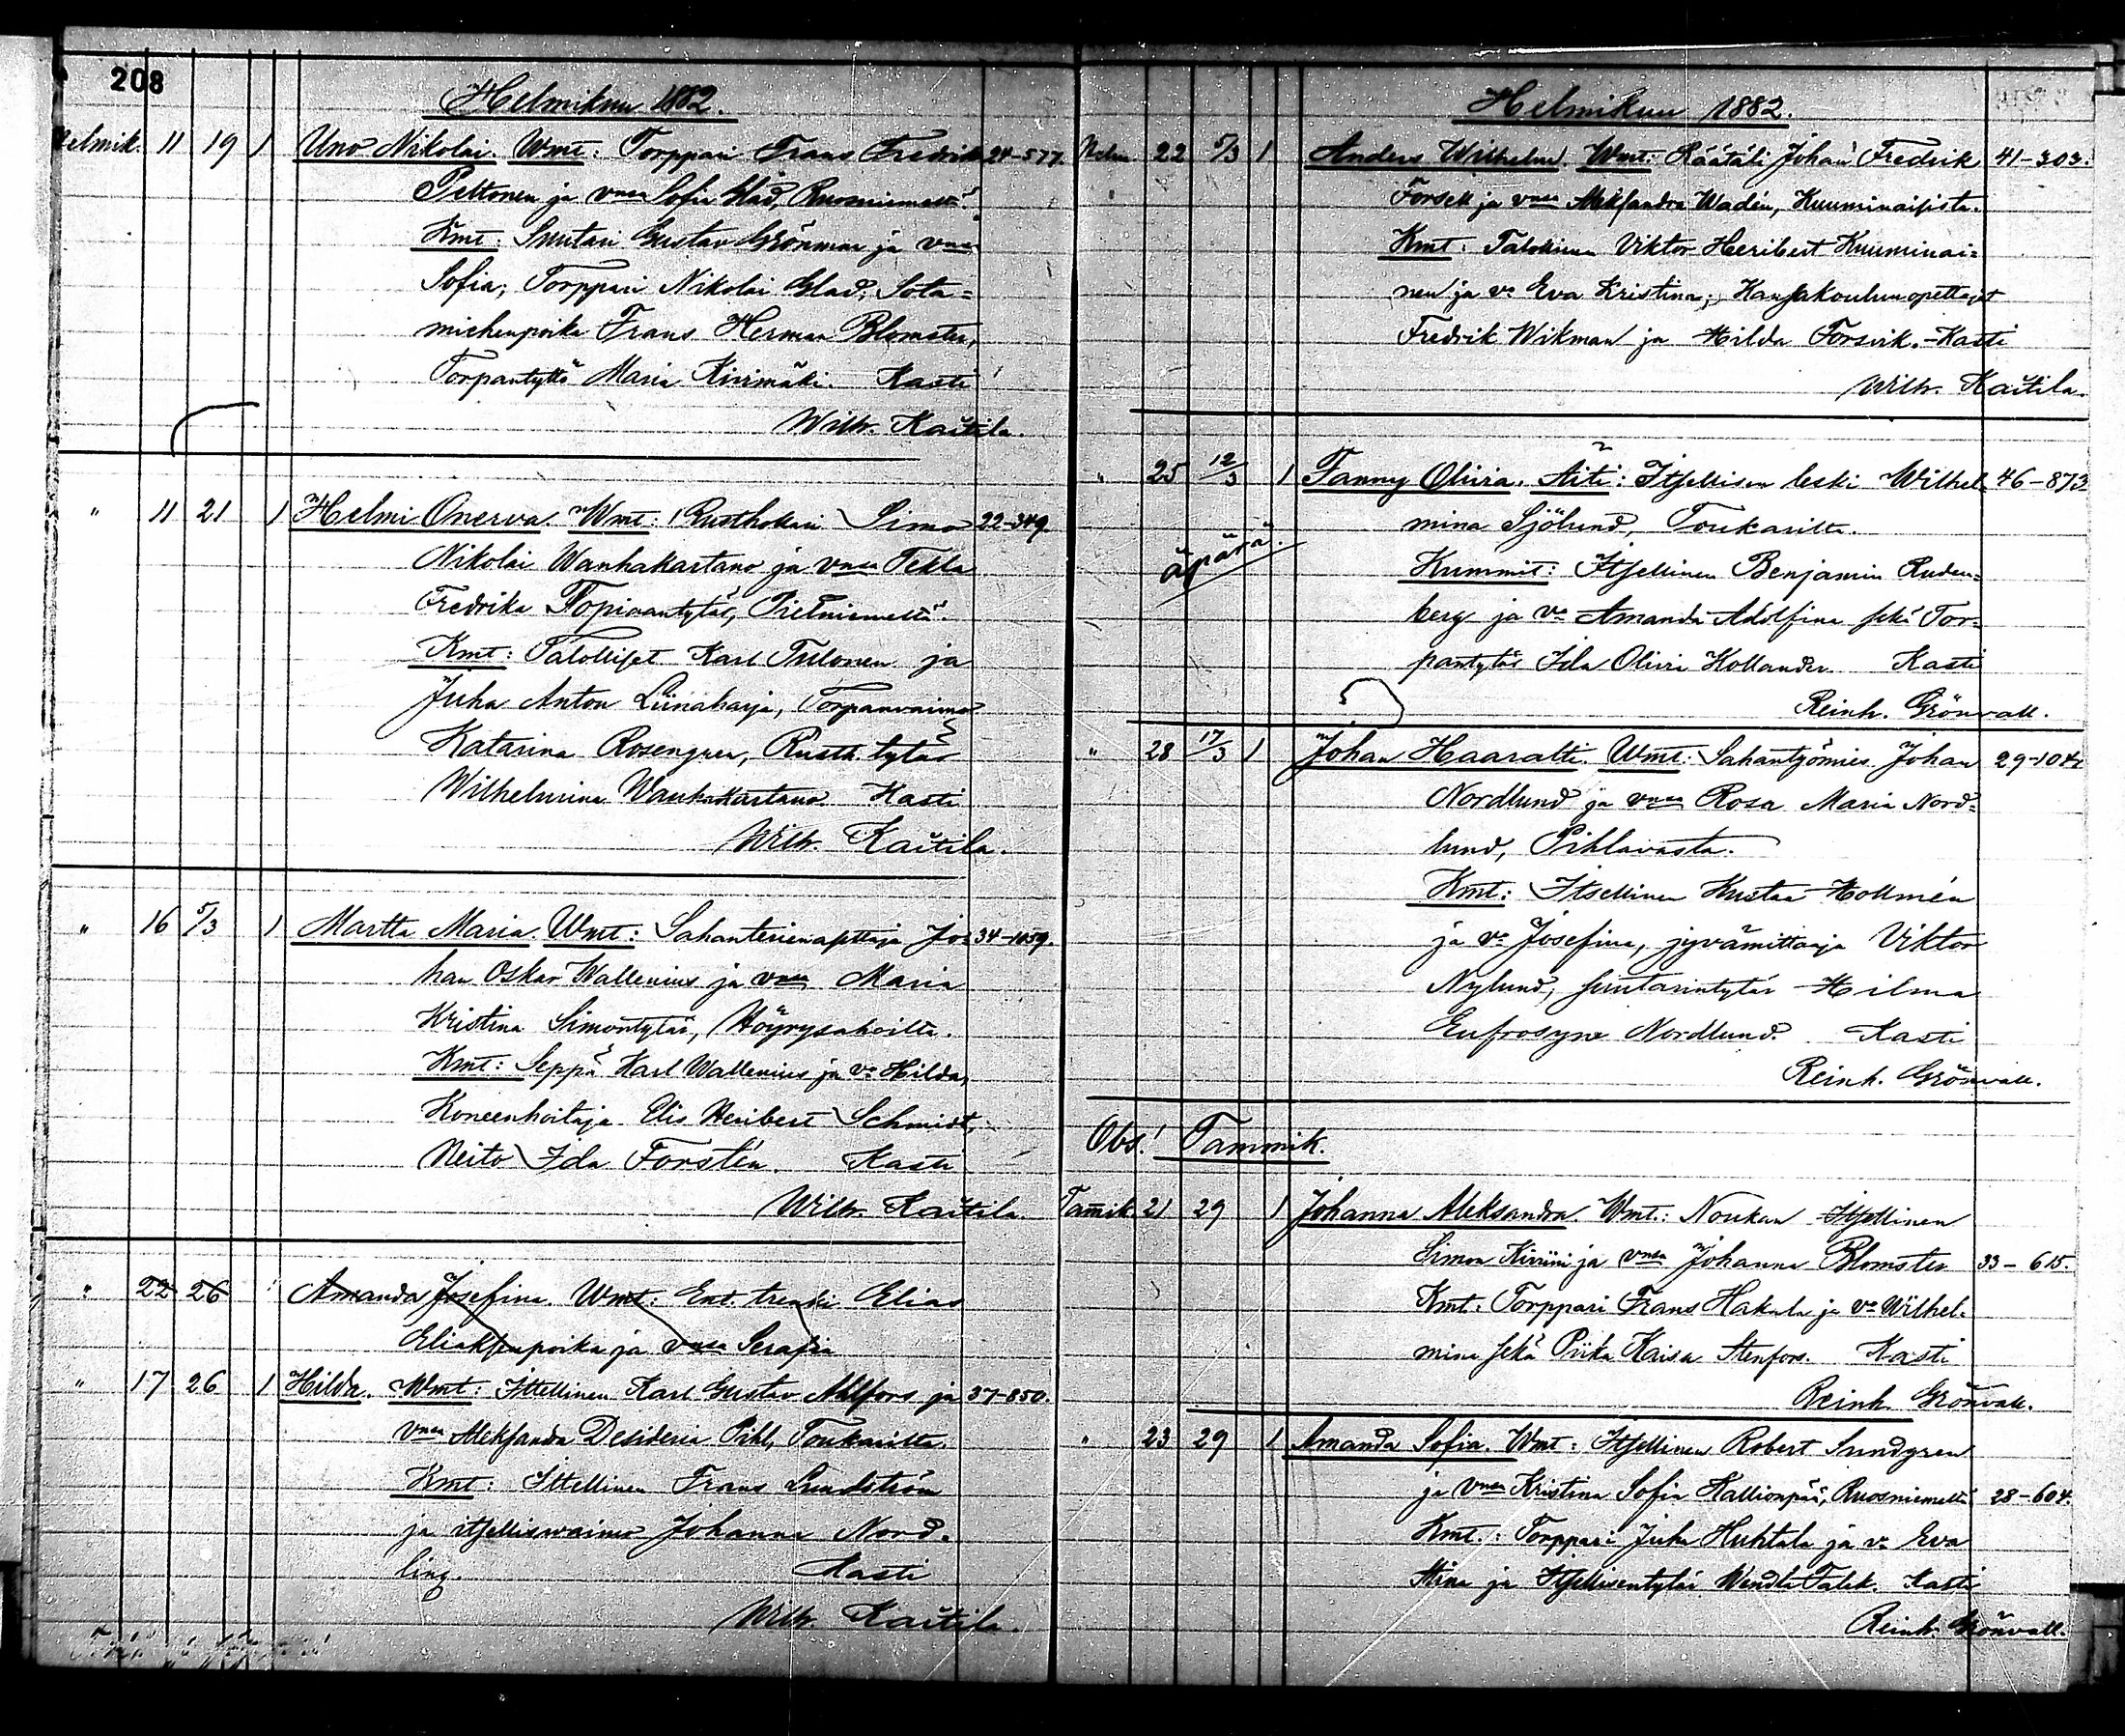 208
Helmikuu 1882.
Helmik. 11 19 1 Uno Nikolai. Wmt: Torppari Frans Fredrik 24-577.
Peltonen ja vmsa Sofia Glad, Ruosniemeltä.
Kmt: Suutari Gustav Grönmar ja vmsa
Sofia; Torppari Nikolai Glad; Sota=
miehenpoika Frans Herman Blomster,
Torpantyttö Maria Kivimäki. Kasti
Wilh. Kaitila.
" 11 21 1 Helmi Onerva. Wmt: Rusthollari Simo 22-349.
Nikolai Wanhakartano ja vmsa Tekla
Fredrika Topiaantytär, Pietniemeltä.
Kmt: Talolliset Karl Tulonen ja
Juha Anton Liinaharja, Torpanvaimo
Katarina Rosengren, Rusth. tytär
Wilhelmina Wanhakartano. Kasti
Wilh. Kaitila.
" 16 5/3 1 Martta Maria. Wmt: Sahanterienasettaja Jo= 34-1059.
han Oskar Wallenius ja vmsa Maria
Kristina Simontytär, Höyrysahoilta.
Kmt: Seppä Karl Wallenius ja vo Hilda,
Koneenhoitaja Elis Heribert Schmidt,
Neito Ida Forstén. Kasti
Wilh. Kaitila.
" 22 26 Amanda Josefina. Wmt: Ent. trenki Elias
Eliaksenpoika ja vmsa Serafia
" 17 26 1 Hilda. Wmt: Ittellinen Karl Gustav Ahlfors ja 37-850.
vmsa Aleksandra Desideria Pihl, Toukarilta.
Kmt: Ittellinen Frans Lundström
ja itselliswaimo Johanna Nord=
ling. Kasti
Wilh. Kaitila.
Helmikuu 1882.
Helm. 22 5/3 1 Anders Wilhelm. Wmt: Räätäli Johan Fredrik 41-303.
Forsell ja vmsa Aleksandra Wadén, Kuuminaisista.
Kmt: Talollinen Viktor Heribert Kuuminai=
nen ja vo Eva Kristina; Kansakoulunopettajat
Fredrik Wikman ja Hilda Forsvik. - Kasti
Wilh. Kaitila.
" 25 12/3 1 Fanny Olivia. Äiti: Itsellisen leski Wilhel= 46-873
mina Sjölund, Toukarilta.
äpärä.
Kummit: Itsellinen Benjamin Ruden=
berg ja vo Amanda Adolfina sekä Tor=
pantytär Ida Olivia Hollander. Kasti
Reinh. Grönvall.
" 28 17/3 1 Johan Haaratti. Wmt: Sahantyömies Johan 29-1042
Nordlund ja vmsa Rosa Maria Nord=
lund, Pihlavasta.
Kmt: Itsellinen Kustaa Hollmén
ja vo Josefina, jyvämittaaja Viktor
Nylund, suutarintytär Hilma
Eufrosyne Nordlund. Kasti
Reinh. Grönvall.
Obs! Tammik.
Tamik. 21 29 1 Johanna Aleksandra. Wmt.: Noukan Itsellinen
Simon Kiviini ja vmsa Johanna Blomster 33-615.
Kmt: Torppari Frans Hakala ja vo Wilhel=
mina sekä Piika Kaisa Stenfors. Kasti
Reinh. Grönvall.
" 23 29 1 Amanda Sofia. Wmt: Itsellinen Robert Sundgren
ja vmsa Kristina Sofia Hallionpää, Ruosniemeltä 28-604.
Kmt.: Torppari Juha Huhtala ja vo Eva
Stina ja Itsellisentytär Wendla Falck. Kasti
Reinh. Grönvall.